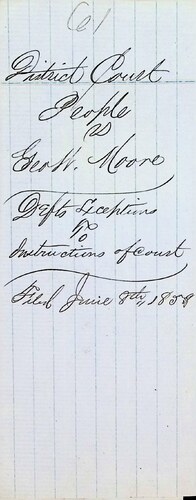 (6)
District Court
People
vs
Geo W. Moore
Defts Exceptions
To
Instructions of Court
Filed June 8th, 1858